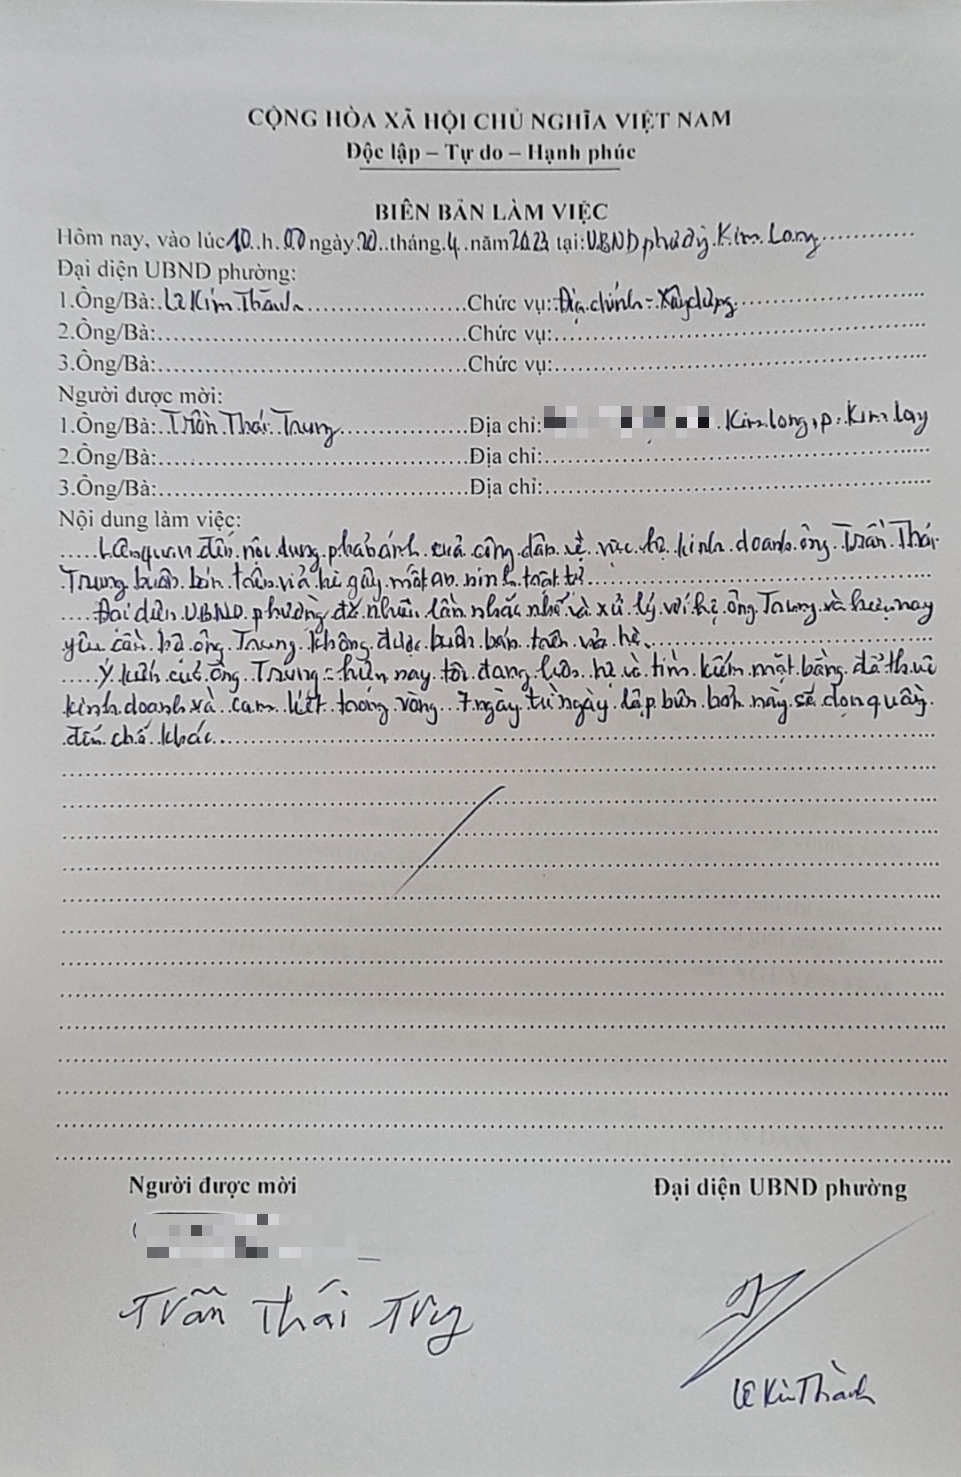 CỘNG HÒA XÃ HỘI CHỦ NGHĨA VIỆT NAM
Độc lập – Tự do – Hạnh phúc
BIÊN BẢN LÀM VIỆC
Hôm nay, vào lúc 10 h 00 ngày 20 tháng 4 năm 2023 tại: UBND phường Kim Long
Đại diện UBND phường:
1.Ông/Bà: Lê Kim Thành Chức vụ: Địa chính - Xây dựng
2.Ông/Bà: Chức vụ:
3.Ông/Bà: Chức vụ:
Người được mời:
1.Ông/Bà: Trần Thái Trung Địa chỉ: Kim Long, p. Kim Long
2.Ông/Bà: Địa chỉ:
3.Ông/Bà: Địa chỉ:
Nội dung làm việc:
Liên quan đến nội dung phản ánh của công dân về việc hộ kinh doanh ông Trần Thái
Trung buôn bán trên vỉa hè gây mất an ninh trật tự.
Đại diện UBND phường đã nhiều lần nhắc nhở và xử lý với hộ ông Trung và hiện nay
yêu cầu hộ ông Trung không được buôn bán trên vỉa hè.
Ý kiến của ông Trung: hiện nay tôi đang liên hệ và tìm kiếm mặt bằng để thuê
kinh doanh và cam kết trong vòng 7 ngày từ ngày lập biên bản này sẽ dọn quầy
đến chỗ khác
Người được mời Đại diện UBND phường
Trần Thái Trung
Lê Kim Thành